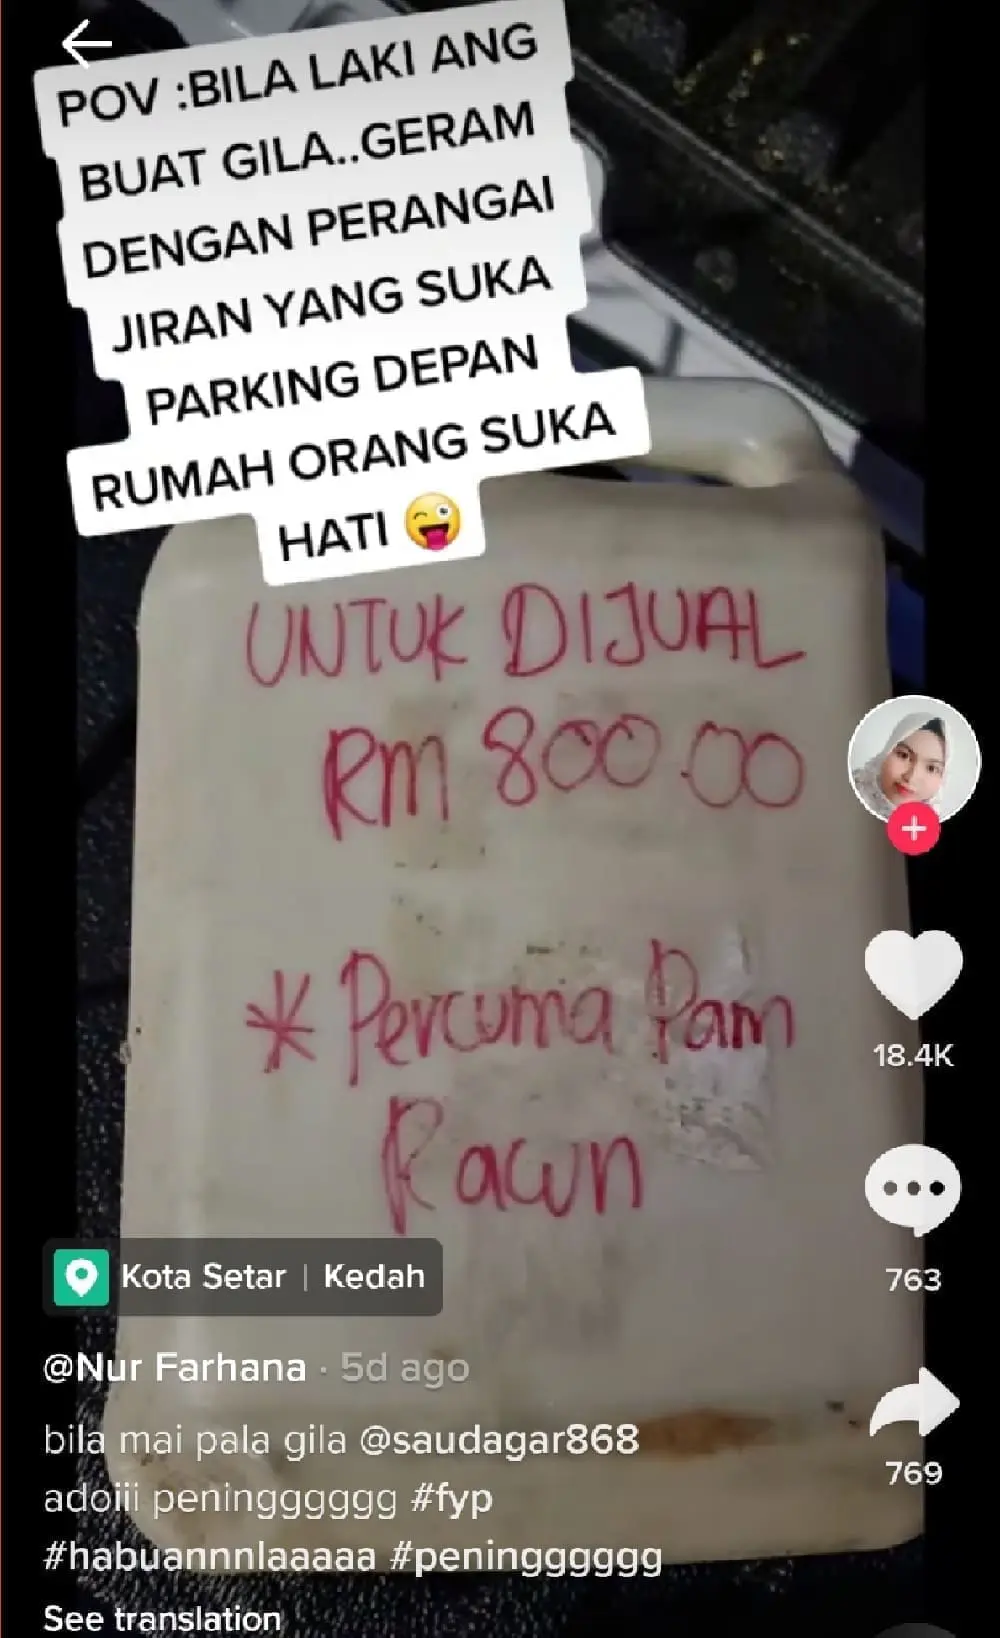 POV :BILA LAKI ANG
BUAT GILA..GERAM
DENGAN PERANGAI
JIRAN YANG SUKA
PARKING DEPAN
RUMAH ORANG SUKA
HATI 😜
UNTUK DIJUAL
RM 800.00
* Percuma Pam
Racun
18.4K
763
769
Kota Setar | Kedah
@Nur Farhana · 5d ago
bila mai pala gila @saudagar868
adoiii peningggggg #fyp
#habuannnlaaaaa #peningggggg
See translation